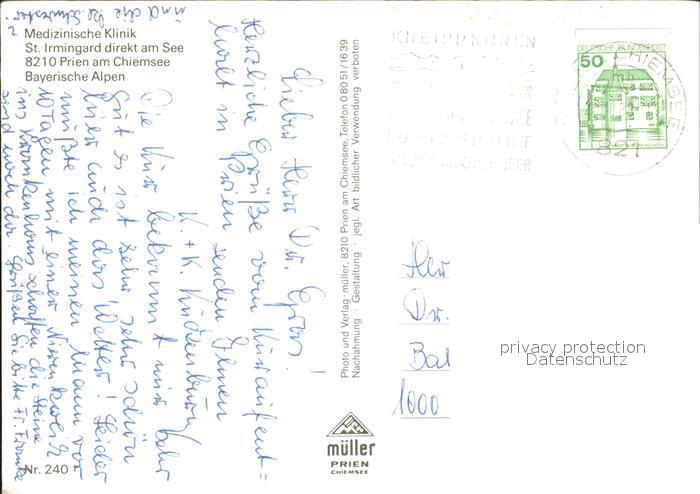 Medizinische Klinik
St. Irmingard direkt am See
8210 Prien am Chiemsee
Bayerische Alpen
Nr. 240
Lieber Herr Dr.
Herzliche Grüße vom Kuraufent=
halt in Prien senden Ihnen
K. + K.
Die Kur bekommt mir sehr
gut es ist sehr sehr schön
hier auch das Wetter! Leider
mußte ich meinen Mann vor
10 Tagen mit einer Nierenkolik
ins Krankenhaus schaffen die Steine
sind noch da. Grüßen Sie bitte Fr.
und die
Photo und Verlag · müller, 8210 Prien am Chiemsee, Telefon 08051/1639
Nachahmung · Gestaltung · jegl. Art bildlicher Verwendung verboten
müller
PRIEN
CHIEMSEE
KNEIPPKUREN
DEUTSCHE BUNDESPOST
50
CHIEMSEE
821
Herr
Dr.
Bal
1000
privacy protection
Datenschutz